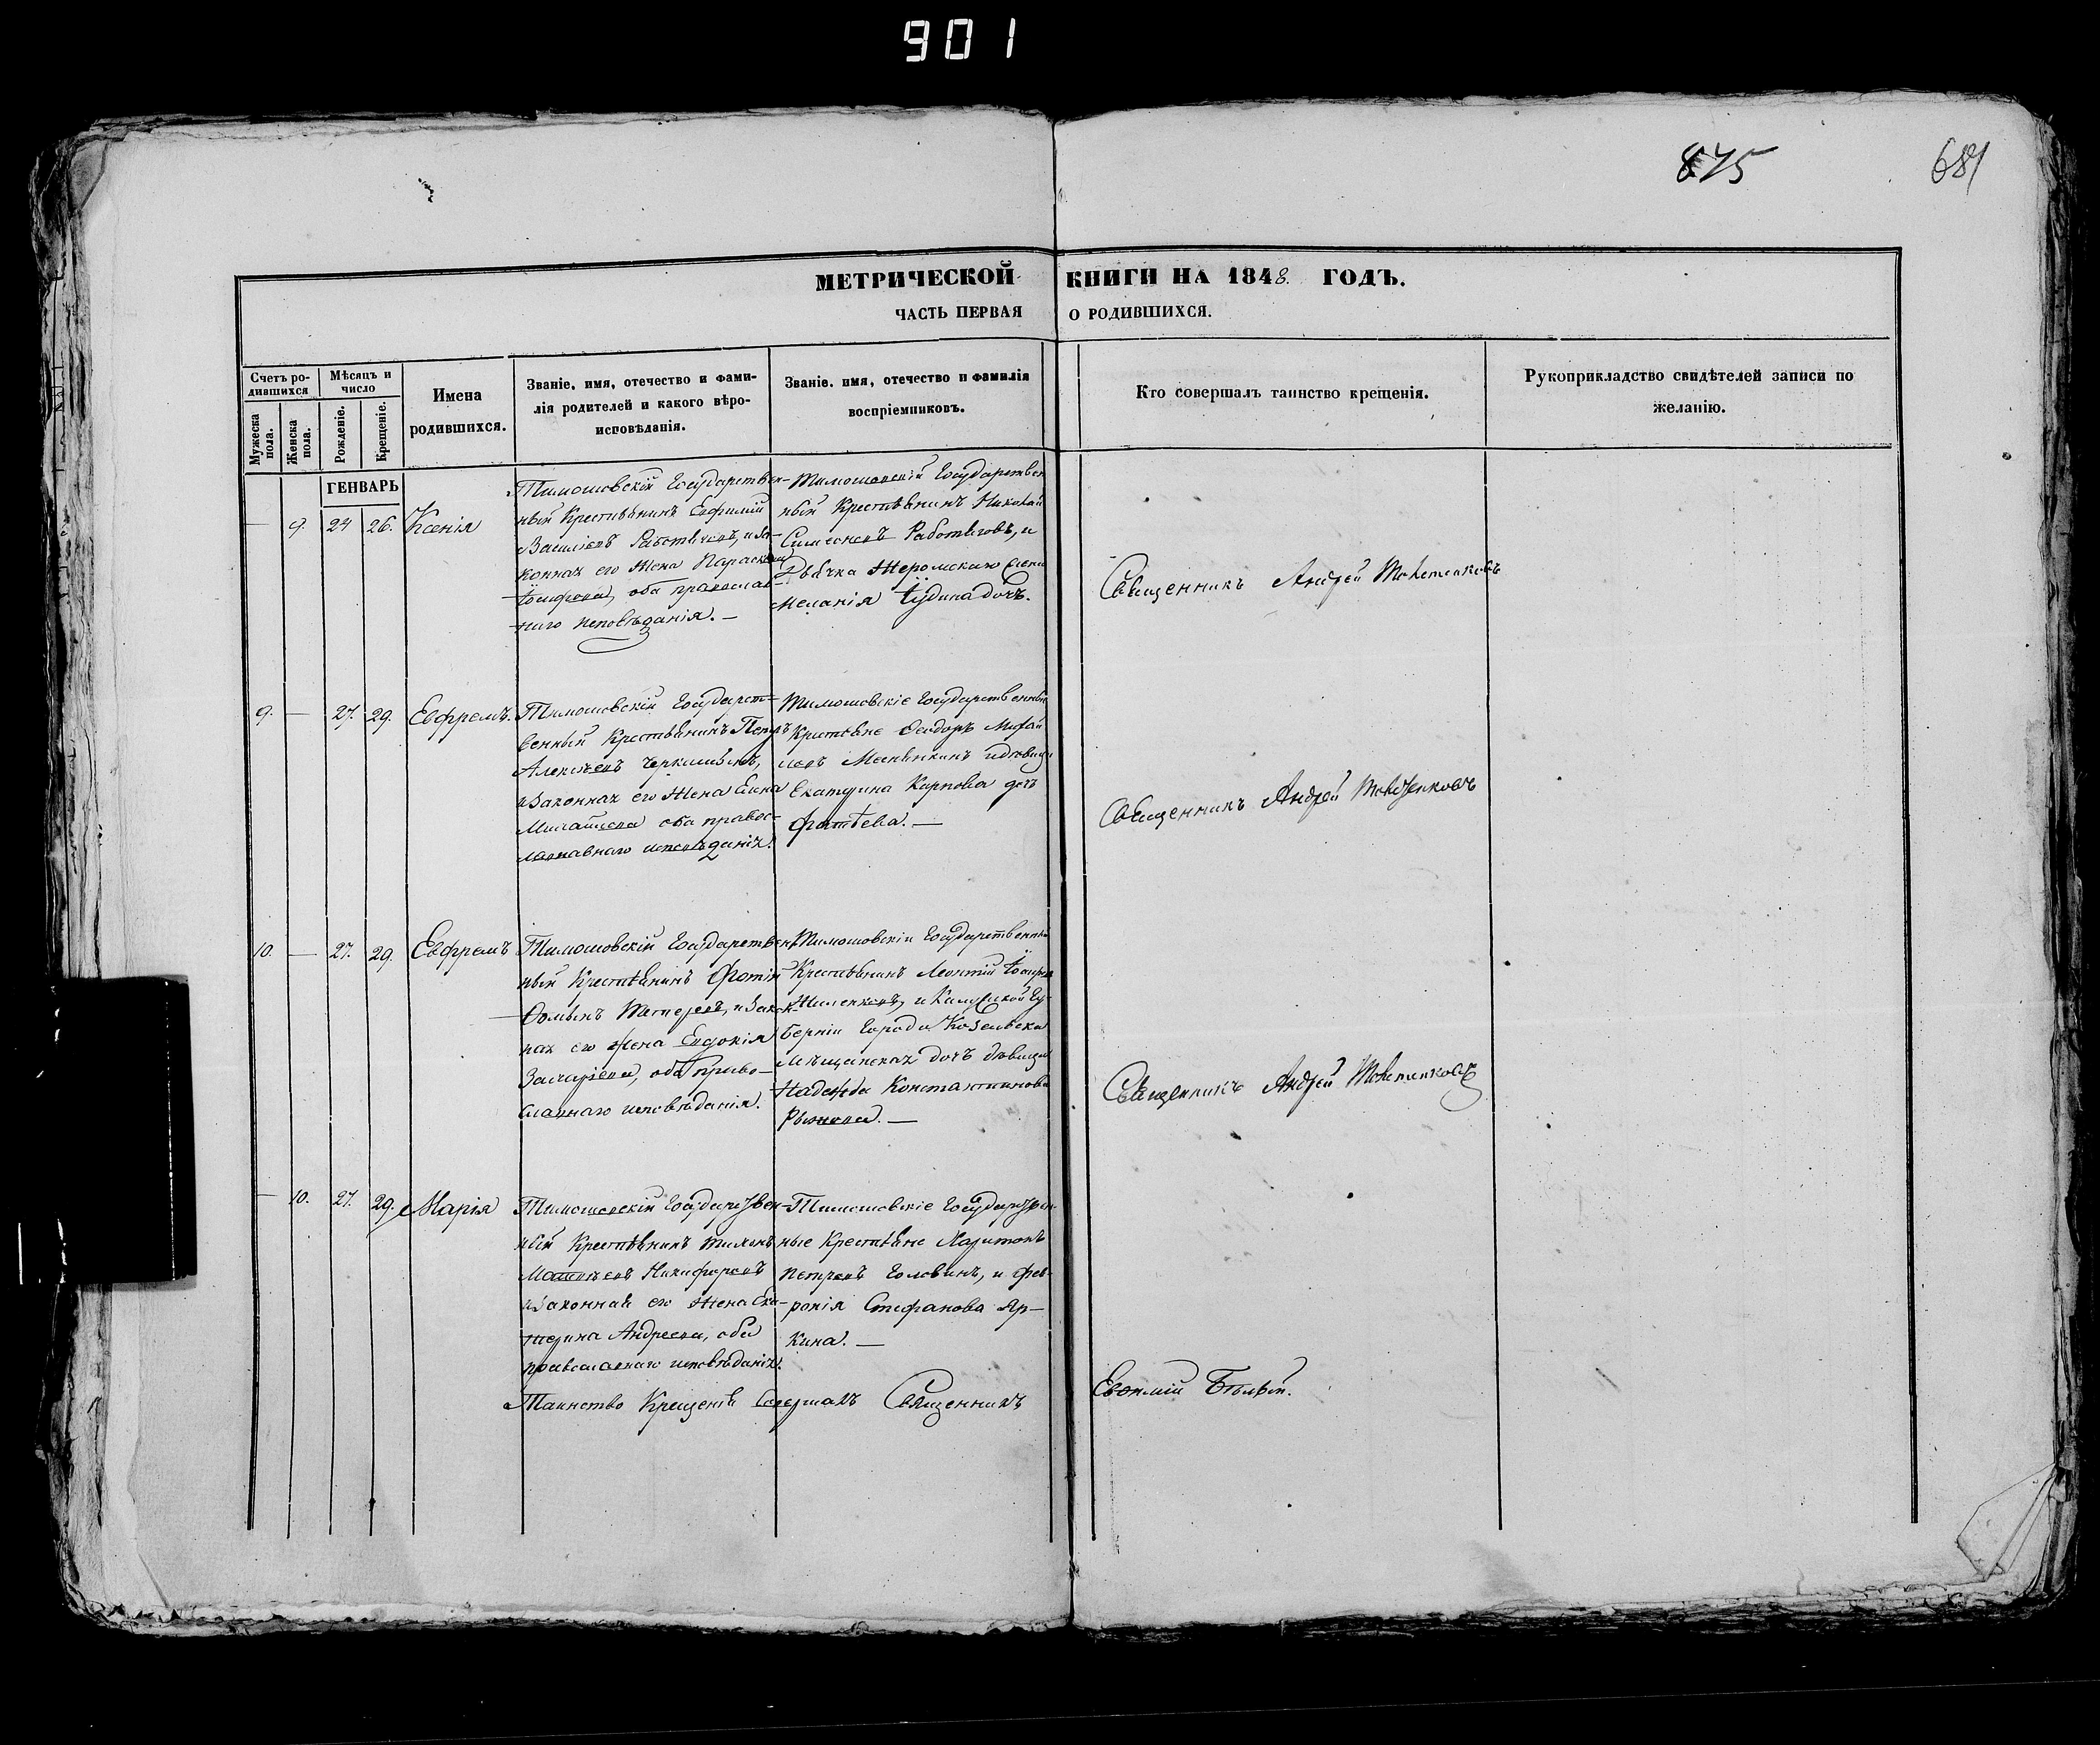 901
875
681
МЕТРИЧЕСКОЙ КНИГИ НА 1848. ГОДЪ.
ЧАСТЬ ПЕРВАЯ О РОДИВШИХСЯ.
Счетъ ро-
дившихся
Мужеска пола.
Женска пола.
Мѣсяцъ и
число
Рожденіе.
Крещеніе.
Имена
родившихся.
Званіе, имя, отечество и фами-
лія родителей и какого вѣро-
исповѣданія.
Званіе, имя, отечество и фамилія
воспріемниковъ.
Кто совершалъ таинство крещенія.
Рукоприкладство свидѣтелей записи по
желанію.
ГЕНВАРЬ
— 9. 24 26. Ксенія
Тимошовскій Государствен-
ный Крестьянинъ Евфимій
Василіевъ и за-
конная его жена Параскева
Іосифова, оба православ-
наго исповѣданія. —
Тимошовскій Государствен
ный Крестьянинъ Николай
Симеоновъ Работяговъ, и
Меланія дочь.
Священникъ Андрей
9. — 27. 29. Евфремъ.
Тимошовскій Государст-
венный Крестьянинъ Петръ
Алексѣевъ
и законная его жена Елена
Михайлова оба правос-
лавнаго исповѣданія.
Тимошовскіе Государственные
Крестьяне Ѳеодоръ Михай
ловъ и дѣвица
Екатерина Карпова дочь
Фатѣева. —
Священникъ Андрей
10. — 27. 29. Евфремъ
Тимошовскій Государствен
ный Крестьянинъ Фотій
Ѳоминъ и закон-
ная его жена Евдокія
Захаріева, оба право-
славнаго исповѣданія.
Тимошовскій Государственный
Крестьянинъ Леонтій Іосифовъ
и Калужской Гу-
берніи города Козельска
Мѣщанская дочь дѣвица
Надежда Константинова
—
Священникъ Андрей
— 10. 27. 29. Марія
Тимошовскій Государствен-
ный Крестьянинъ Тихонъ
Матвѣевъ Никифоровъ
и законная его жена Ека-
терина Андреева, оба
православнаго исповѣданія.
Тимошовскіе Государствен-
ные Крестьяне Харитонъ
Петровъ Головинъ, и Фев-
ронія Стефанова Яр-
кина. —
Таинство Крещенія Совершалъ Священникъ Евѳимій Бѣлый.